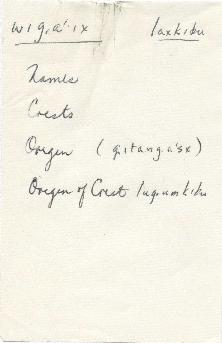 wi g.a'ix laxkibu
Names
Crests
Origin (gitang.a'sx)
Origin of Crest lug.umkibu